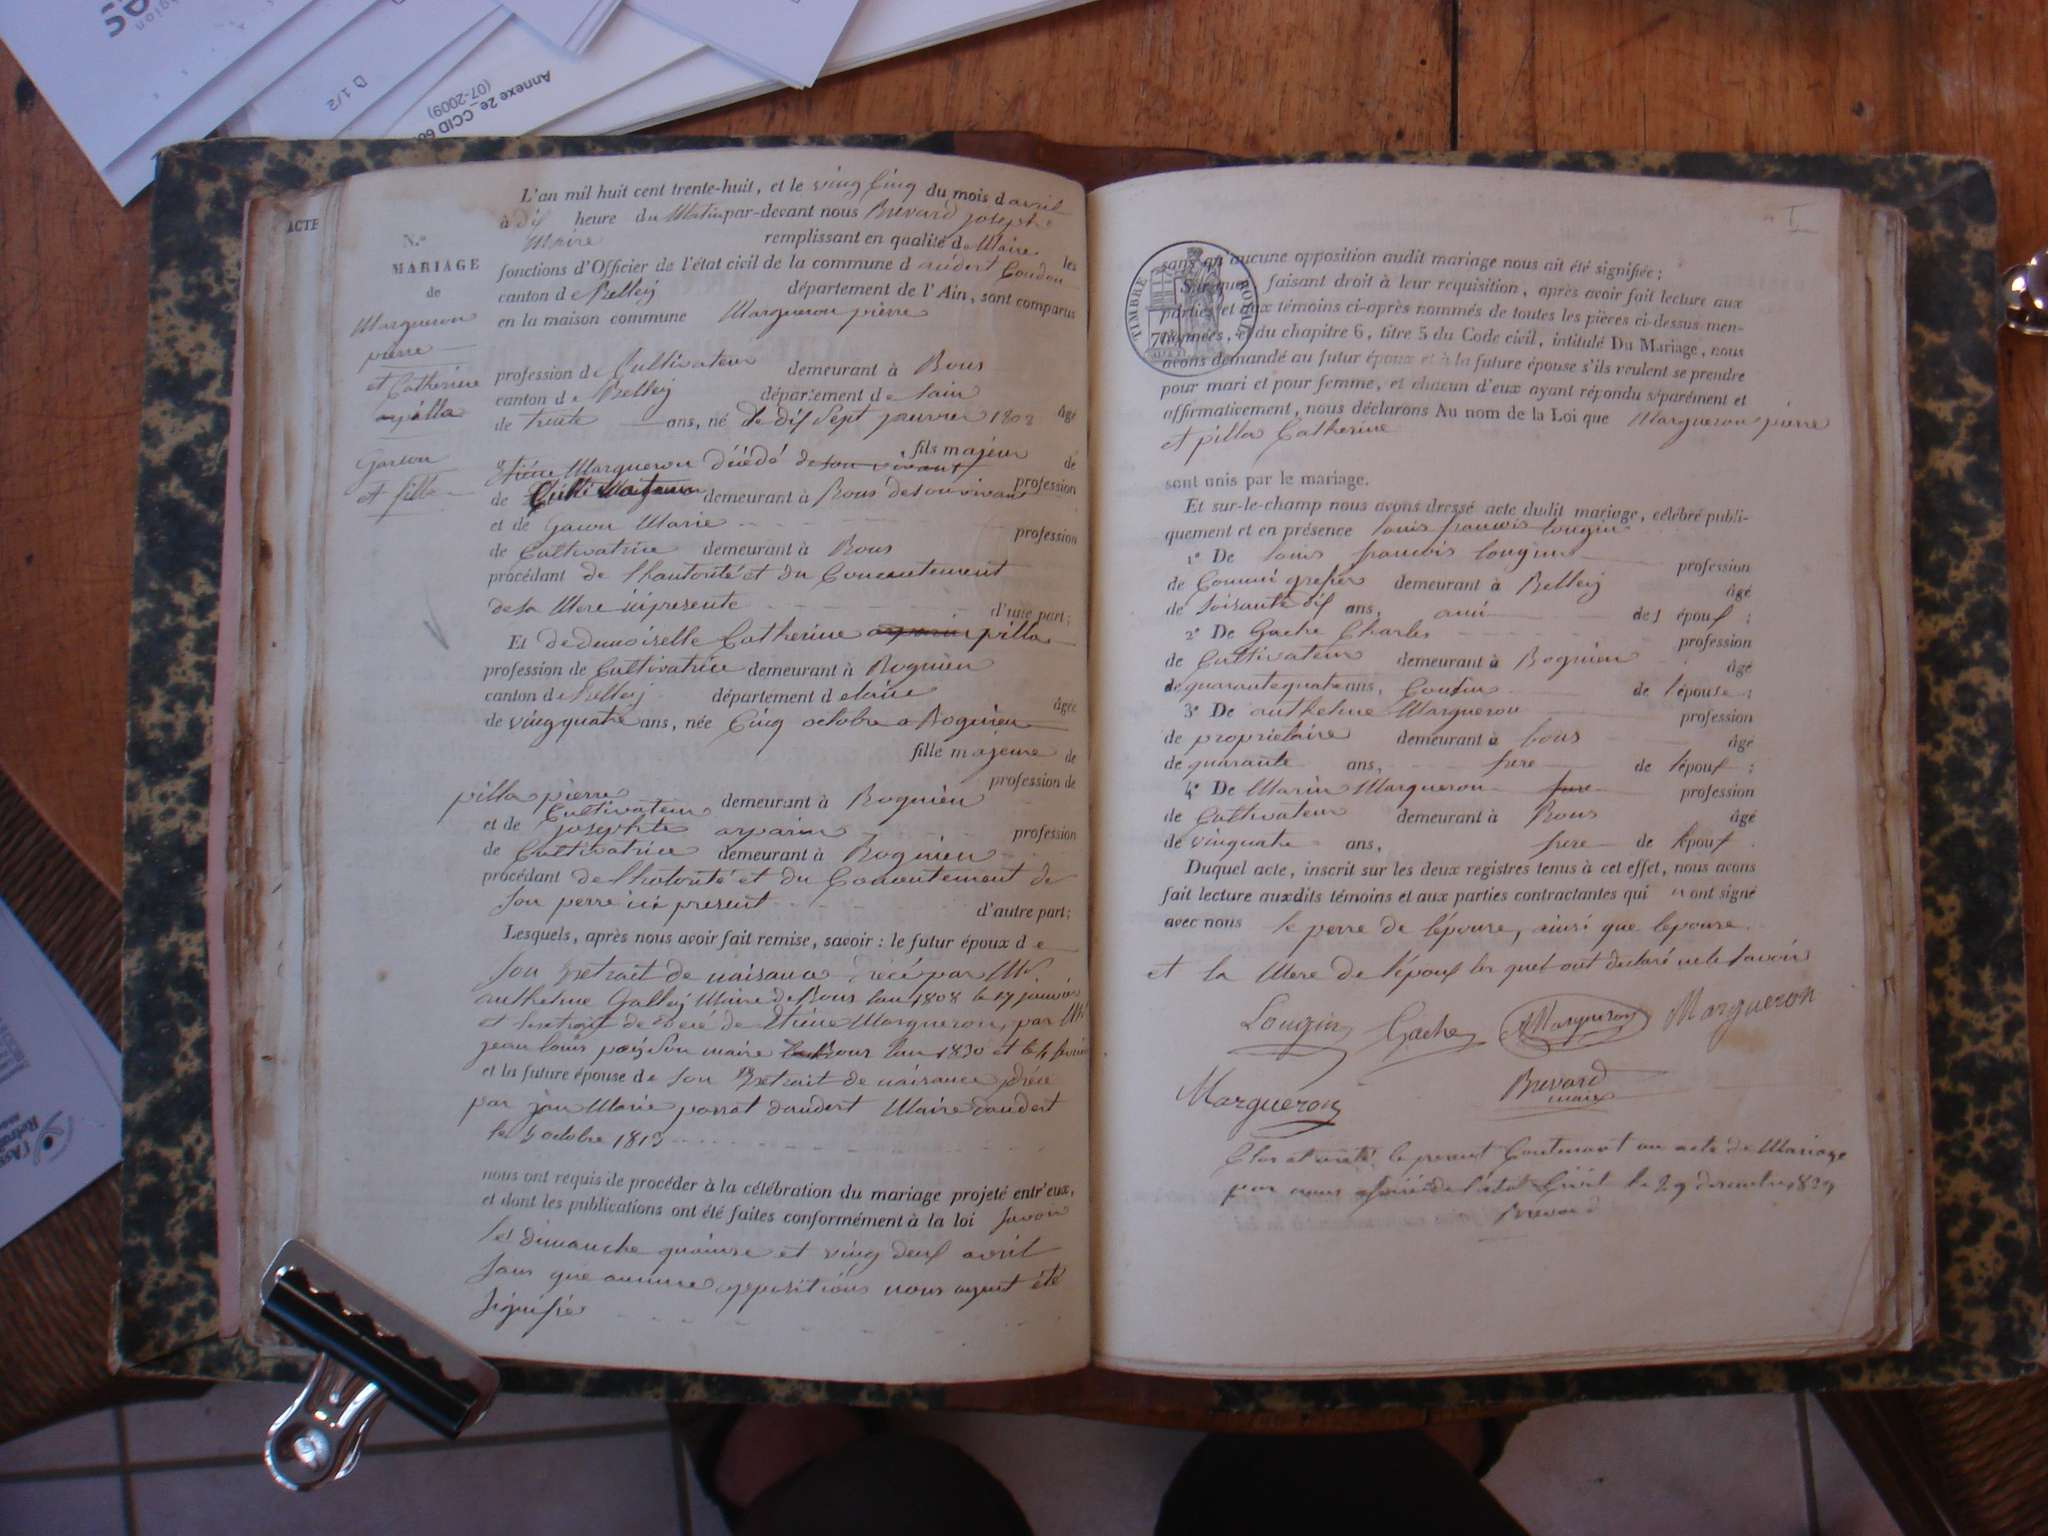 Annexe 2e_CCID 60
(07-2009)
D 1/2
ACTE
N.o
MARIAGE
de
Margueron
pierre
et Catherine
Garcon
et fille
L'an mil huit cent trente-huit, et le ving Cinq du mois d avril
à dix heure du Matin par-devant nous Brevard joseph
Maire remplissant en qualité de Maire les
fonctions d'Officier de l'état civil de la commune d andert Condon
canton de Belley département de l'Ain, sont comparus
en la maison commune Margueron pierre
profession de Cultivateur demeurant à Bons
canton de Belley département de lain
âgé
de trente ans, né le dix Sept janvier 1808
fils majeur de
Margueron décédé de son vivant profession
de Cultivateur demeurant à Bons de son vivant
et de Marie profession
de Cultivatrice demeurant à Bons
procédant de lhautorité et du Concentement
de sa Mere ici presente d'une part;
Et de demoiselle Catherine pilla
profession de Cultivatrice demeurant à Rognieu
canton de Belley département d
âgée
de ving quatre ans, née Cinq octobre a Rognieu
fille majeure de
profession de
pilla pierre
Cultivateur demeurant à Rognieu
et de josephte profession
de Cultivatrice demeurant à Rognieu
procédant de lhotorité et du Concentement de
son perre ici present d'autre part;
Lesquels, après nous avoir fait remise, savoir : le futur époux d e
son Extrait de naisance par Mr
anthelme Gallay Maire de Bons lan 1808 le 17 janvier
et lextrait de de Margueron, par Mr
jean louis maire Bons lan 1830 et le 4
et la future épouse de son Extrait de naisance
par Marie Maire dandert
le 5 octobre 1813
nous ont requis de procéder à la célébration du mariage projeté entr'eux,
et dont les publications ont été faites conformément à la loi savoir
les dimanche quainse et ving deux avril
sans que aucune oppositions nous ayent été
signifié
TIMBRE ROYAL
sans qu'aucune opposition audit mariage nous ait été signifiée;
Sur quoi, faisant droit à leur requisition, après avoir fait lecture aux
parties et aux témoins ci-après nommés de toutes les pièces ci-dessus men-
tionnées, et du chapitre 6, titre 5 du Code civil, intitulé Du Mariage, nous
avons demandé au futur époux et à la future épouse s'ils veulent se prendre
pour mari et pour femme, et chacun d'eux ayant répondu séparément et
affirmativement, nous déclarons Au nom de la Loi que Margueron pierre
et pilla Catherine
sont unis par le mariage.
Et sur-le-champ nous avons dressé acte dudit mariage, célébré publi-
quement et en présence louis francois lougin
1o De louis francois lougin profession
de Commi grefier demeurant à Belley âgé
de soisante dix ans, ami de l époux ;
2o De Gache Charles profession
de Cultivateur demeurant à Rognieu âgé
de quarante quatre ans, Cousin de l'épouse ;
3o De anthelme Margueron profession
de propriétaire demeurant à bons âgé
de quarante ans, frere de lépoux ;
4o De Marin Margueron frere profession
de Cultivateur demeurant à Bons âgé
de vinquatre ans, frere de lépoux.
Duquel acte, inscrit sur les deux registres tenus à cet effet, nous avons
fait lecture auxdits témoins et aux parties contractantes qui ont signé
avec nous le perre de lépouse, ainsi que lepouse.
et la Mere de lépoux les quel ont declaré ne le savoir
Lougin Gache AMargueron Margueron
Margueron Brevard
maire
Clos et arété le present Contenant un acte de Mariage
par nous de l'état Civil le 29 decembre 1838
Brevard